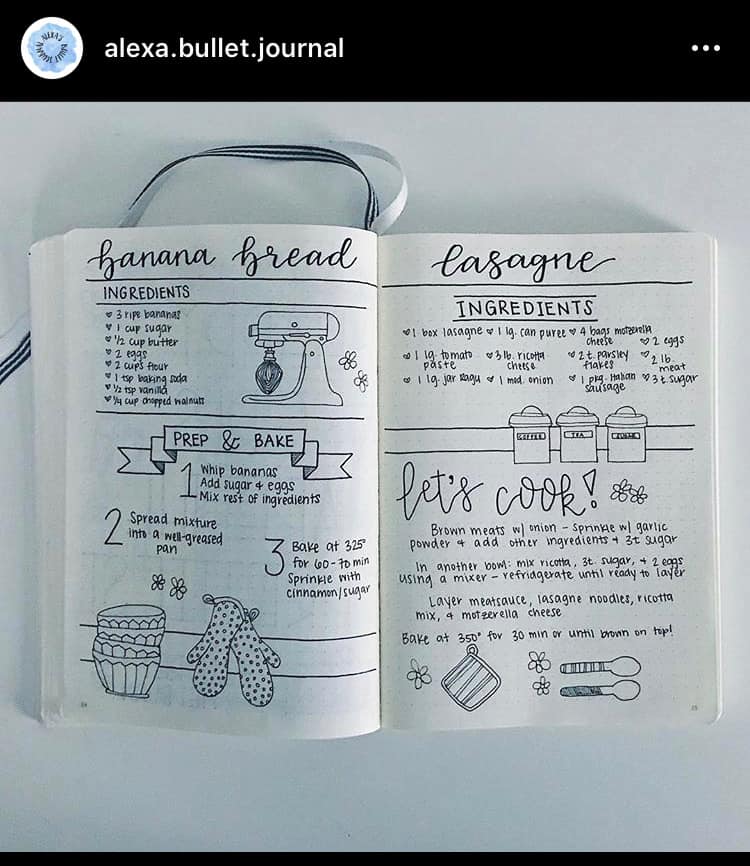 alexa.bullet.journal
banana bread
INGREDIENTS
3 ripe bananas
1 cup sugar
1/2 cup butter
2 eggs
2 cups flour
1 tsp baking soda
1/2 tsp vanilla
1/4 cup chopped walnuts
PREP & BAKE
1 Whip bananas
Add sugar & eggs
Mix rest of ingredients
2 Spread mixture
into a well-greased
pan
3 Bake at 325°
for 60-70 min
Sprinkle with
cinnamon/sugar
lasagne
INGREDIENTS
1 box lasagne
1 lg. can puree
4 bags motzerella
cheese
2 eggs
1 lg. tomato
paste
3 lb. ricotta
cheese
2 t. parsley
flakes
2 lb.
meat
1 lg. jar ragu
1 med. onion
1 pkg. Italian
sausage
3 t. sugar
COFFEE
TEA
SUGAR
let's cook!
Brown meats w/ onion - sprinkle w/ garlic
powder & add other ingredients & 3t sugar
In another bowl: mix ricotta, 3t. sugar, & 2 eggs
using a mixer - refridgerate until ready to layer
Layer meatsauce, lasagne noodles, ricotta
mix, & motzerella cheese
Bake at 350° for 30 min or until brown on top!